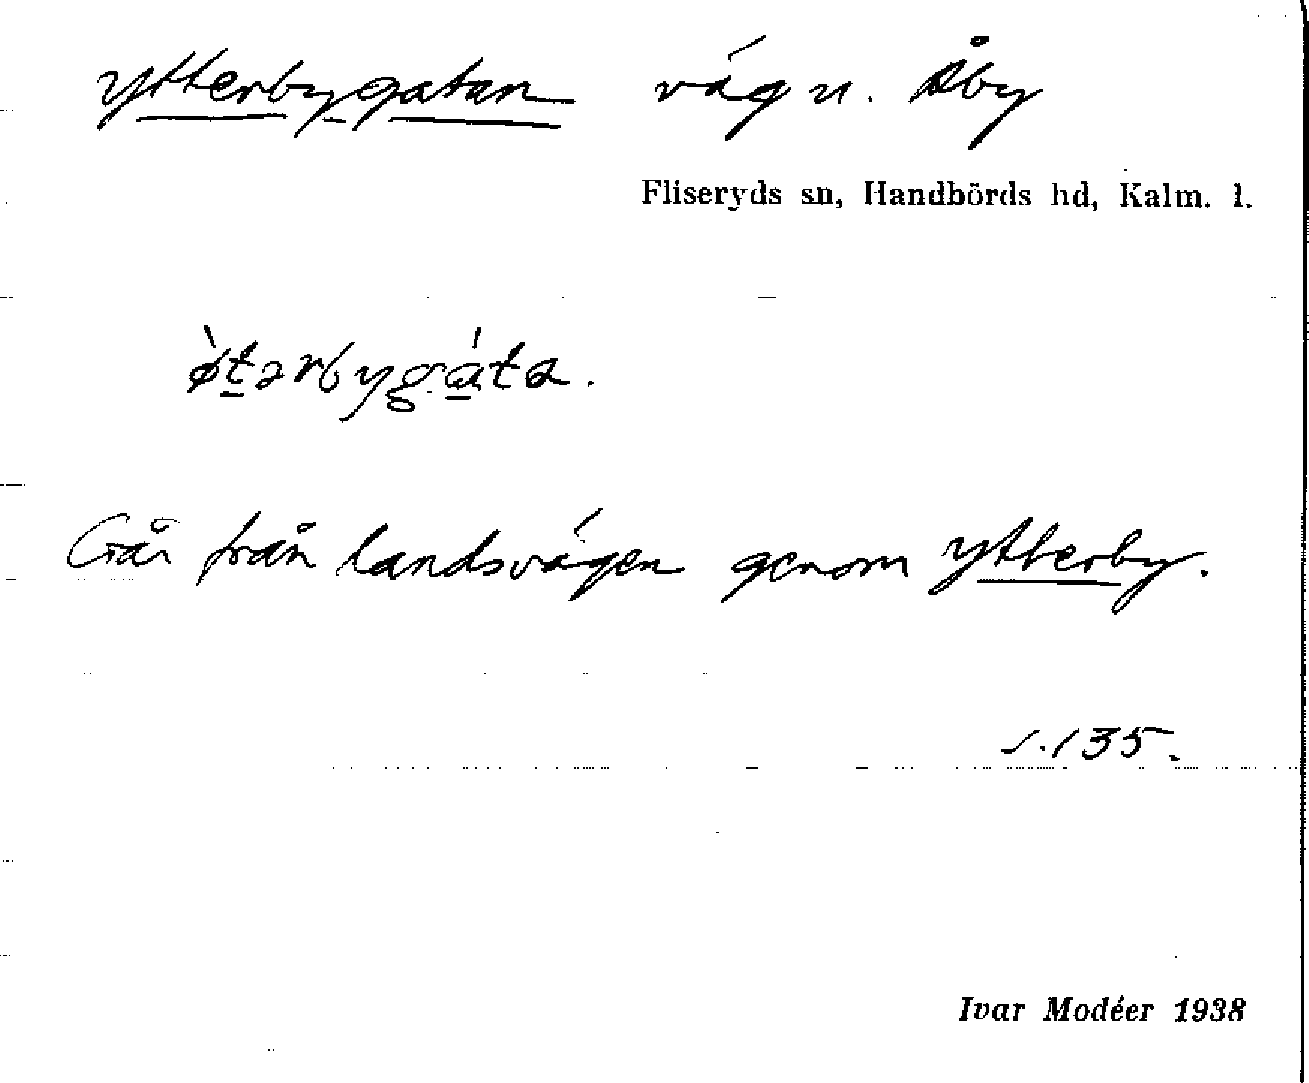 Ytterbygatan väg u. Åby
Fliseryds sn, Handbörds hd, Kalm. l.
ø̀tərbygáta.
Går från landsvägen genom Ytterby.
s. 135.
Ivar Modéer 1938